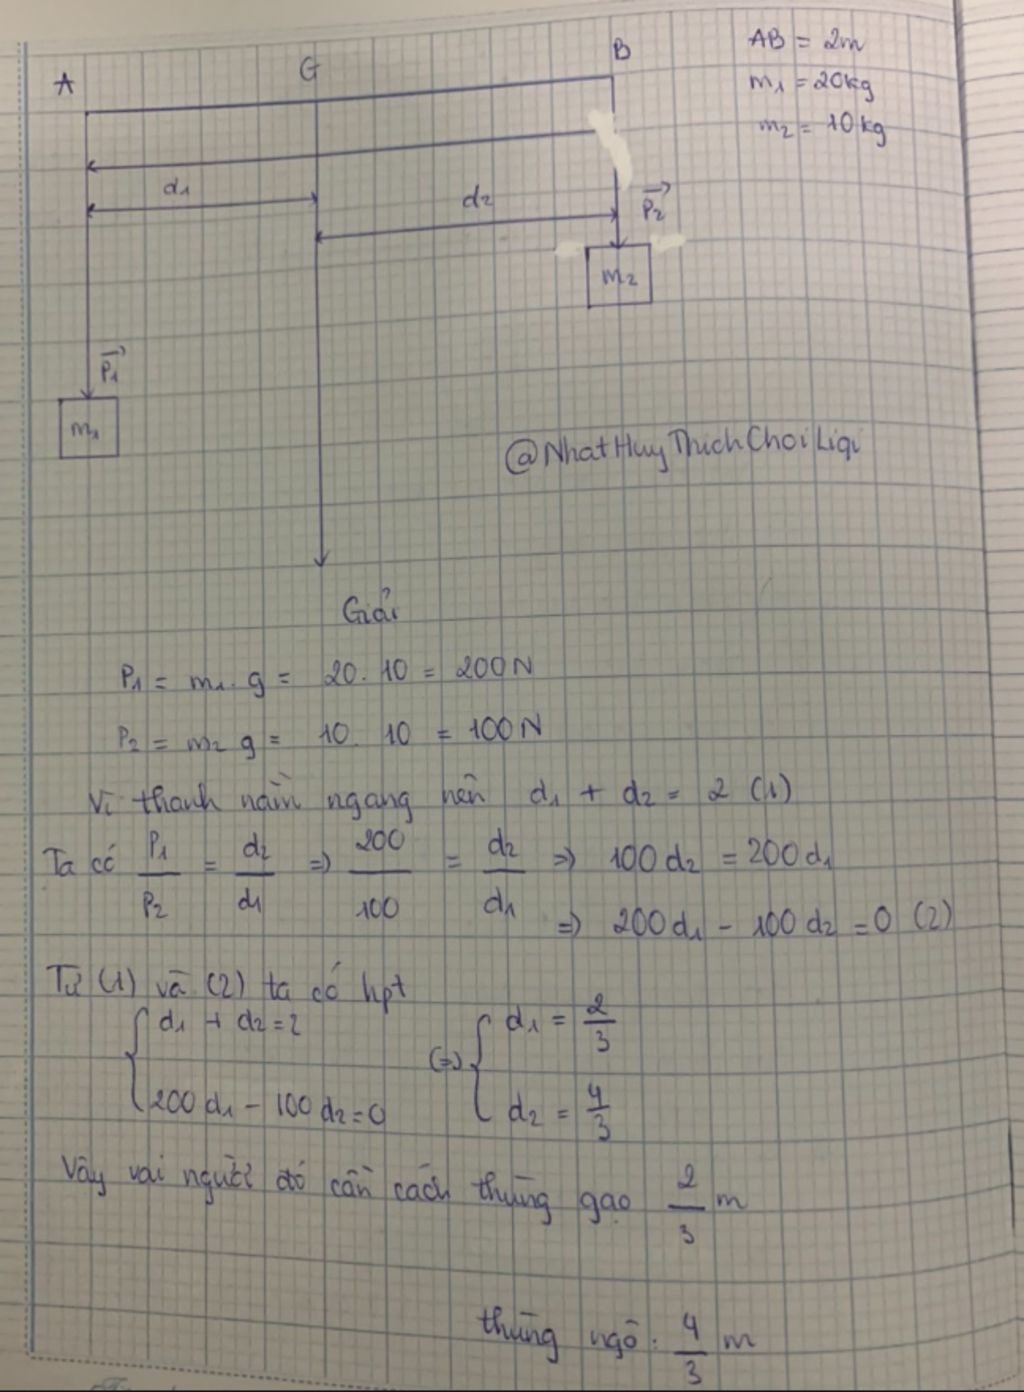 A G B AB = 2m
m1 = 20kg
m2 = 10kg
d1 d2 P2
m2
P1
m1
@NhatHuyThichChoiLiqi
Giải
P1 = m1. g = 20. 10 = 200N
P2 = m2 g = 10. 10 = 100N
Vì thanh nằm ngang nên d1 + d2 = 2 (1)
Ta có P1/P2 = d2/d1 => 200/100 = d2/d1 => 100d2 = 200d1
=> 200d1 - 100d2 = 0 (2)
Từ (1) và (2) ta có hpt
{ d1 + d2 = 2 (=>) { d1 = 2/3
200d1 - 100d2 = 0 d2 = 4/3
Vậy vai người đó cần cách thùng gạo 2/3 m
thùng ngô: 4/3 m